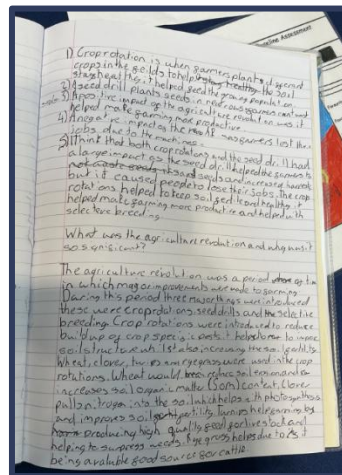 1) Crop rotation is when farmers plant different
crops in the feilds to help the soil
stay healthy, it helped feed the growing population.
2) A seed drill plants seeds in neat rows farmers
3) A positive impact of the agriculture revolution was it
helped make farming more productive.
4) A negative impact of the was farmers lost their
jobs due to the machines.
5) I think that both crop rotation and the seed drill had
a large impact as the seed drill helped the farmers to
seeds and increased harvests
but it caused people to lose their jobs. The crop
rotations helped to keep soil fertile and healthy, it
helped make farming more productive and helped with
selective breeding.
What was the agriculture revolution and why was it
so significant?
The agriculture revolution was a period of time
in which major improvements were made to farming
During this period three major things were introduced
these were crop rotations, seed drills and the selective
breeding. Crop rotations were introduced to reduce
build up of crop specific pests. It helps to improve
soil structure whilst also increasing the soil fertility
Wheat, clover, turnips and ryegrass were used in the crop
rotations. Wheat would reduce soil erosion and
increases soil organic matter (Som) content. Clover
pulls nitrogen into the soil which helps with photosynthesis
and improves soil fertility. turnips help farming by
producing high quality feed for livestock and
helping to suppress weeds. Rye grass helps due to it
being a valuble food source for cattle